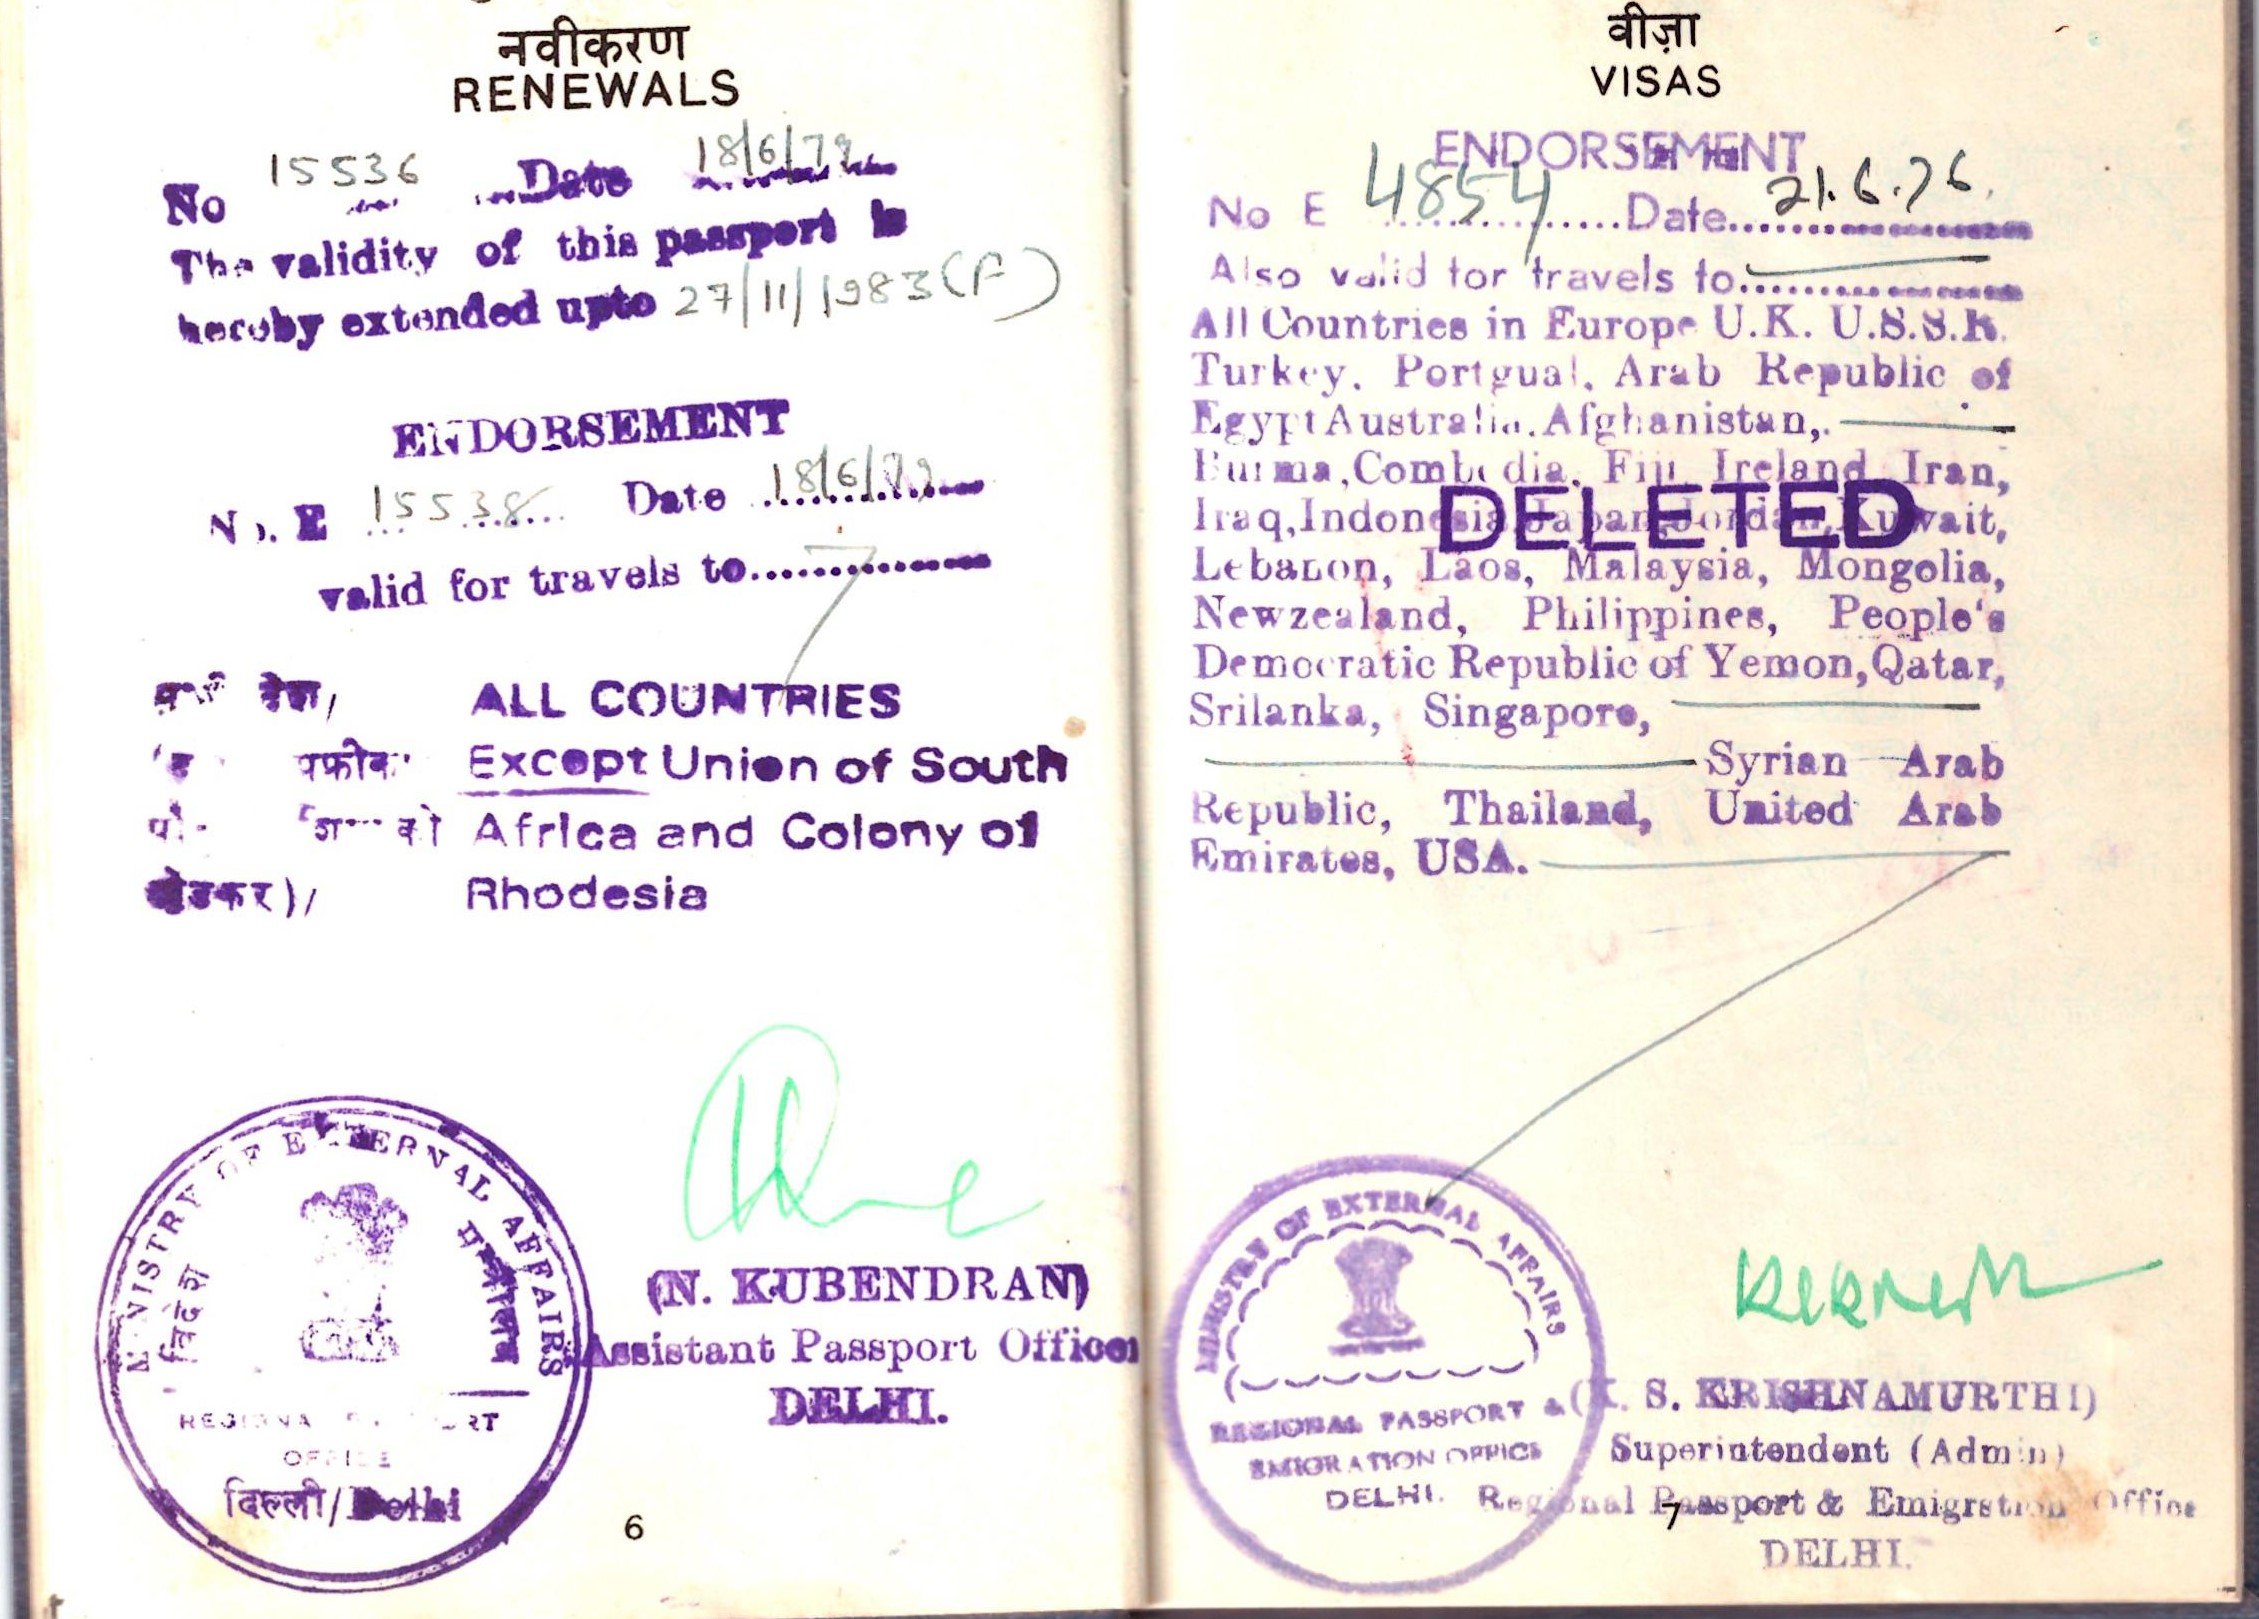 नवीकरण
RENEWALS
No 15536 Date 18/6/79
The validity of this passport is
hereby extended upto 27/11/1983 (F)
ENDORSEMENT
No. E 15538 Date 18/6/79
valid for travels to
ALL COUNTRIES
Except Union of South
Africa and Colony of
छोडकर)/ Rhodesia
(N. KUBENDRAN)
Assistant Passport Officer
DELHI.
MINISTRY OF EXTERNAL AFFAIRS
विदेश
REGIONAL PASSPORT
OFFICE
दिल्ली/Delhi
6
वीज़ा
VISAS
ENDORSEMENT
No E 4854 Date 21.6.76.
Also valid for travels to
All Countries in Europe U.K. U.S.S.R.
Turkey, Portgual, Arab Republic of
Egypt Australia, Afghanistan,
Burma, Combodia, Fiji, Ireland, Iran,
Iraq, Indonesia, Japan, Jordan, Kuwait,
DELETED
Lebanon, Laos, Malaysia, Mongolia,
Newzealand, Philippines, People's
Democratic Republic of Yemon, Qatar,
Srilanka, Singapore,
Syrian Arab
Republic, Thailand, United Arab
Emirates, USA.
MINISTRY OF EXTERNAL AFFAIRS
REGIONAL PASSPORT &
EMIGRATION OFFICE
DELHI.
(K. S. KRISHNAMURTHI)
Superintendent (Admin)
Regional Passport & Emigration Office
DELHI.
7